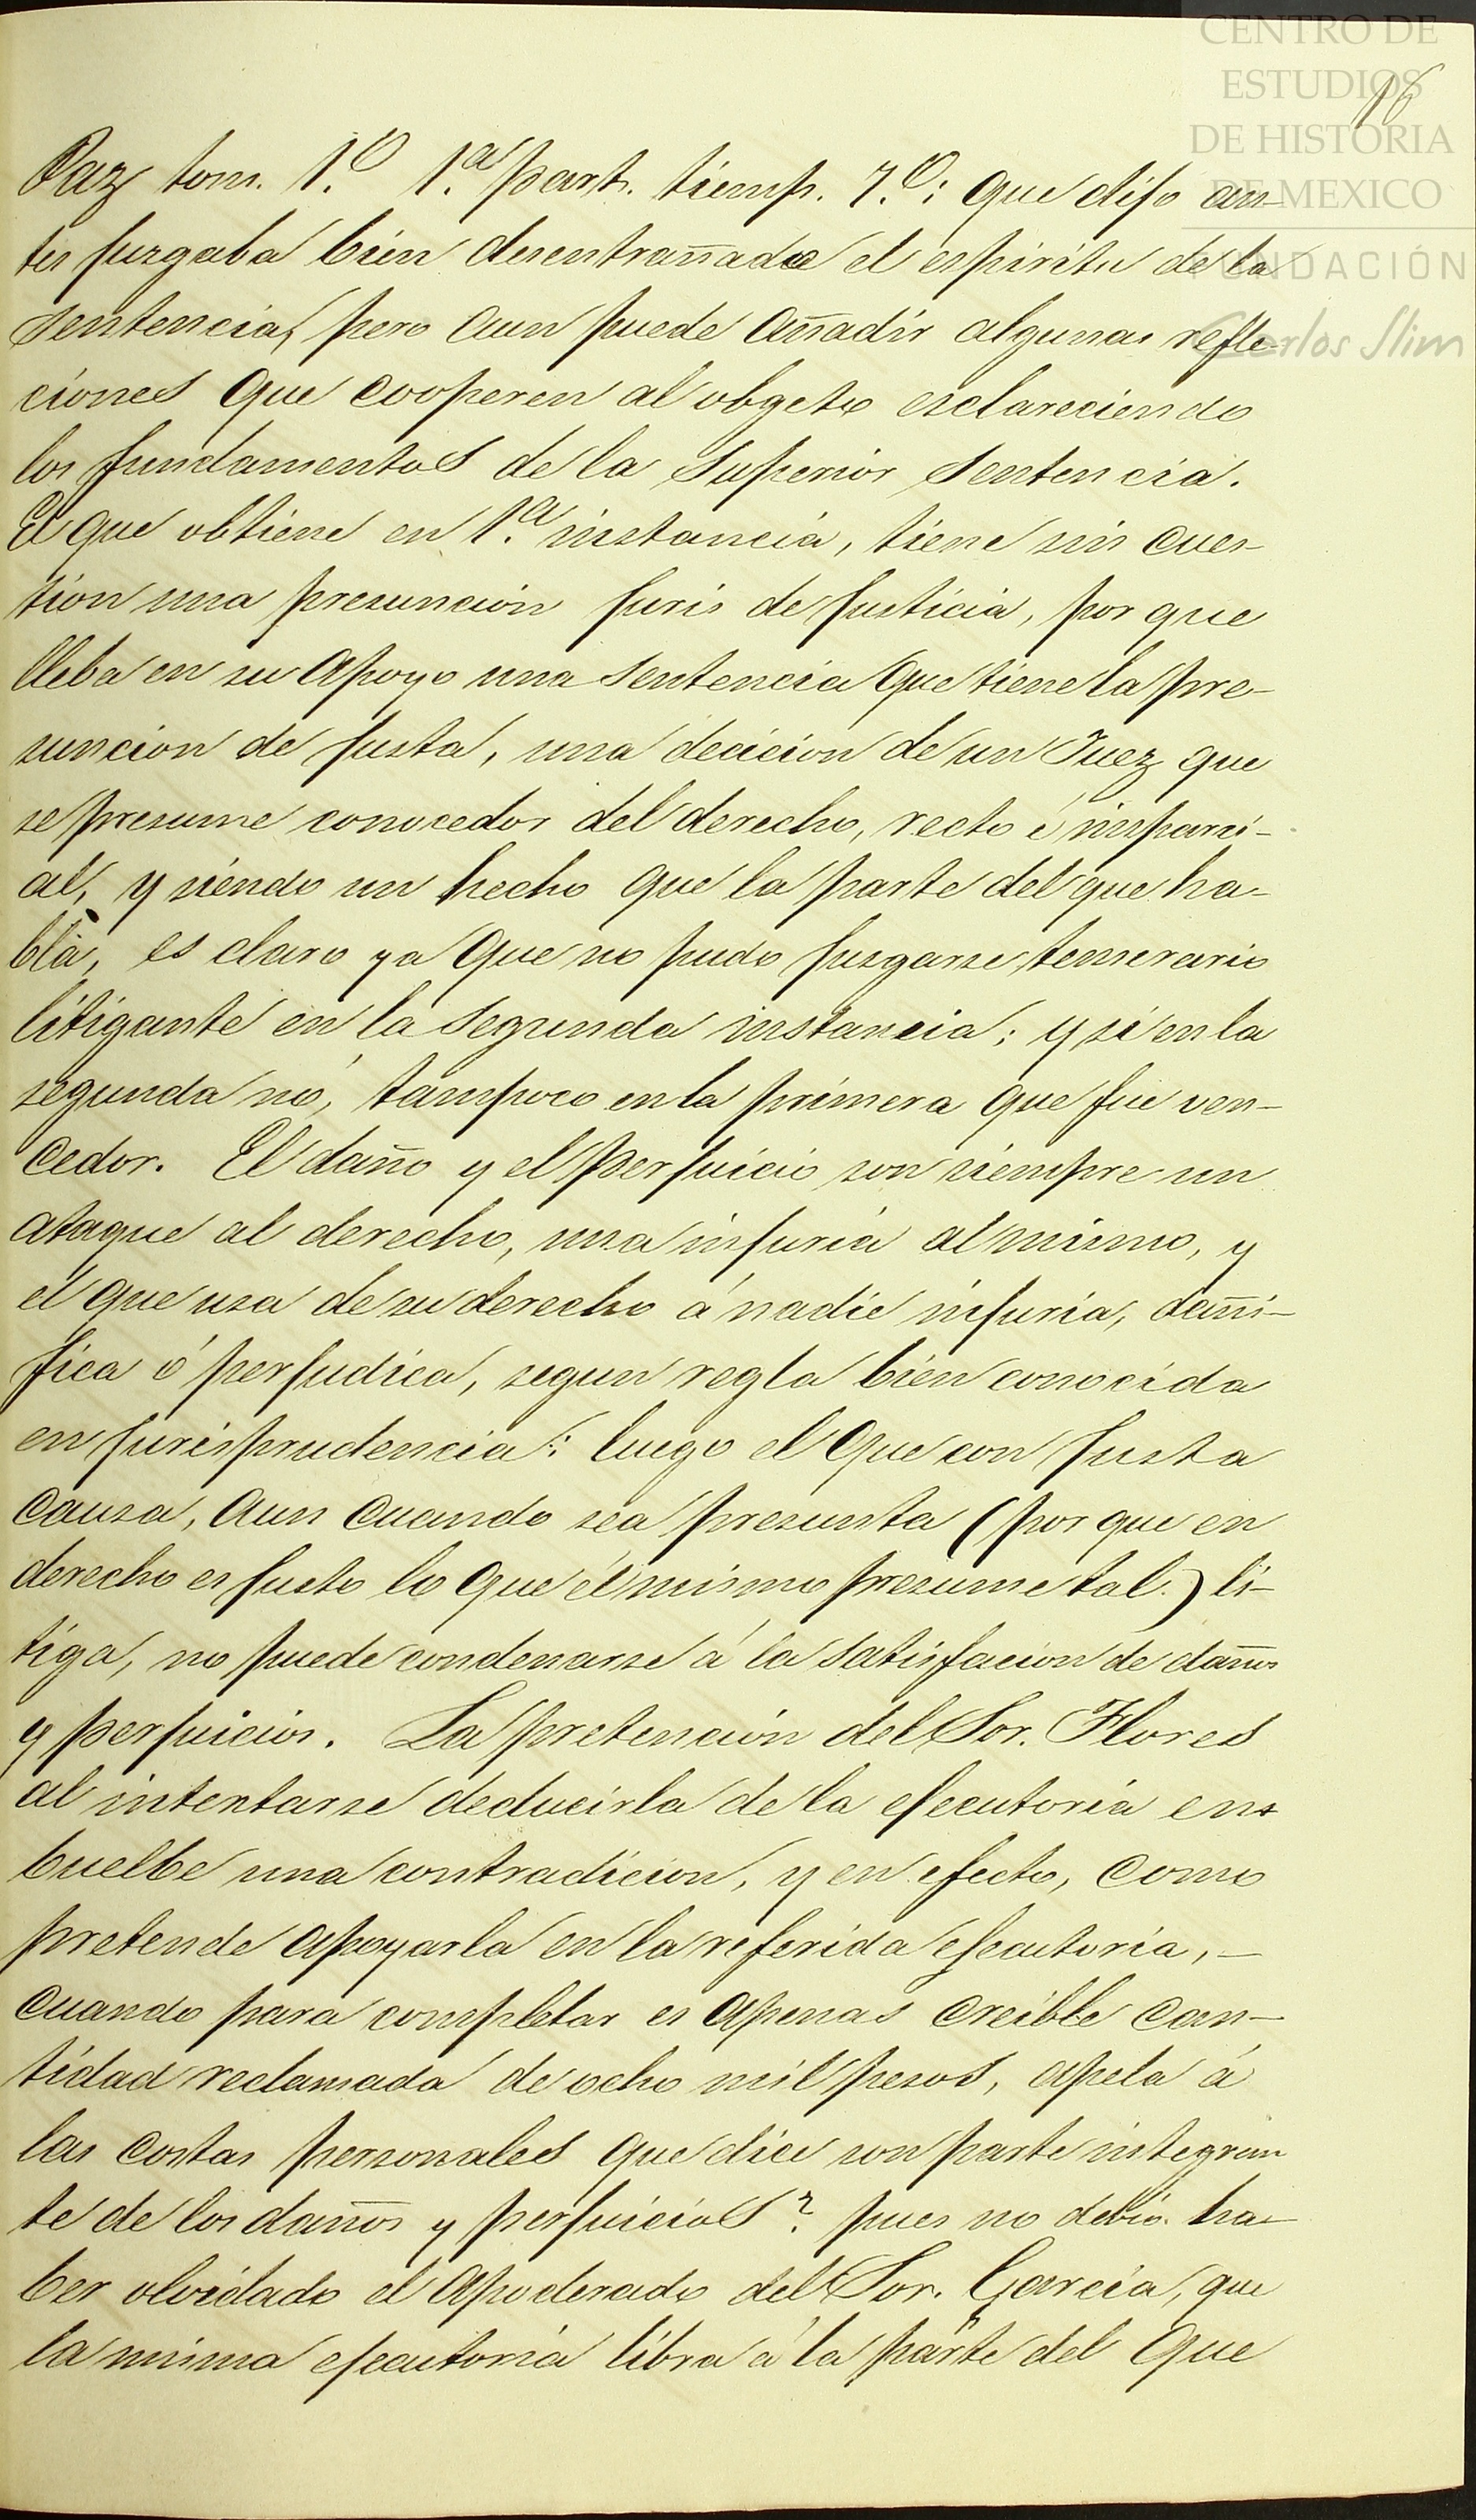 CENTRO DE
ESTUDIOS
DE HISTORIA
DE MEXICO
FUNDACIÓN
Carlos Slim
16
Paz tom. 1.º 1.ª part. tiemp. 7.º: que dijo an-
tes juzgaba bien desentrañado el espiritu de la
sentencia, pero aun puede añadir algunas refle-
ciones que cooperen al obgeto esclareciendo
los fundamentos de la Superior sentencia.
El que obtiene en 1.ª instancia, tiene sin cues-
tion una presuncion juris de justicia, por que
lleba en su apoyo una sentencia que tiene la pre-
suncion de justa, una decicion de un Juez que
se presume conocedor del derecho, recto é imparci-
al, y siendo un hecho que la parte del que ha-
bla, es claro ya que no pudo juzgarse temerario
litigante en la segunda instancia; y si en la
segunda nó, tampoco en la primera que fue ven-
cedor. El daño y el perjuicio son siempre un
ataque al derecho, una injuria al mismo, y
el que usa de su derecho á nadie injuria, dañi-
fica ó perjudica, segun regla bien conocida
en jurisprudencia: luego el que con justa
causa, aun cuando sea presunta (por que en
derecho es justo lo que él mismo presume tal.) li-
tiga, no puede condenarse á la satisfacion de daños
y perjuicios. La pretencion del Sor. Flores
al intentarse deducirla de la ejecutoria en-
buelbe una contradicion, y en efecto, como
pretende apoyarla en la referida ejecutoria, -
cuando para completar es apenas creible can-
tidad reclamada de ocho mil pesos, apela á
las costas personales que dice son parte integran
te de los daños y perjuicios? pues no debió ha-
ber olvidado el apoderado del Sor. Garcia, que
la misma ejecutoria libra á la parte del que